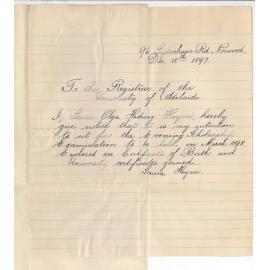 96 Sydenham Rd Norwood
Dec. 18th 1897.
To the Registrar of the
University of Adelaide
I, Laura Olga Hedwig Heyne, hereby
give notice that it is my intention
to sit for the Evening Scholarship
Examination to be held in March 1898.
Enclosed are Certificate of Birth and
University certificates gained.
Laura Heyne.